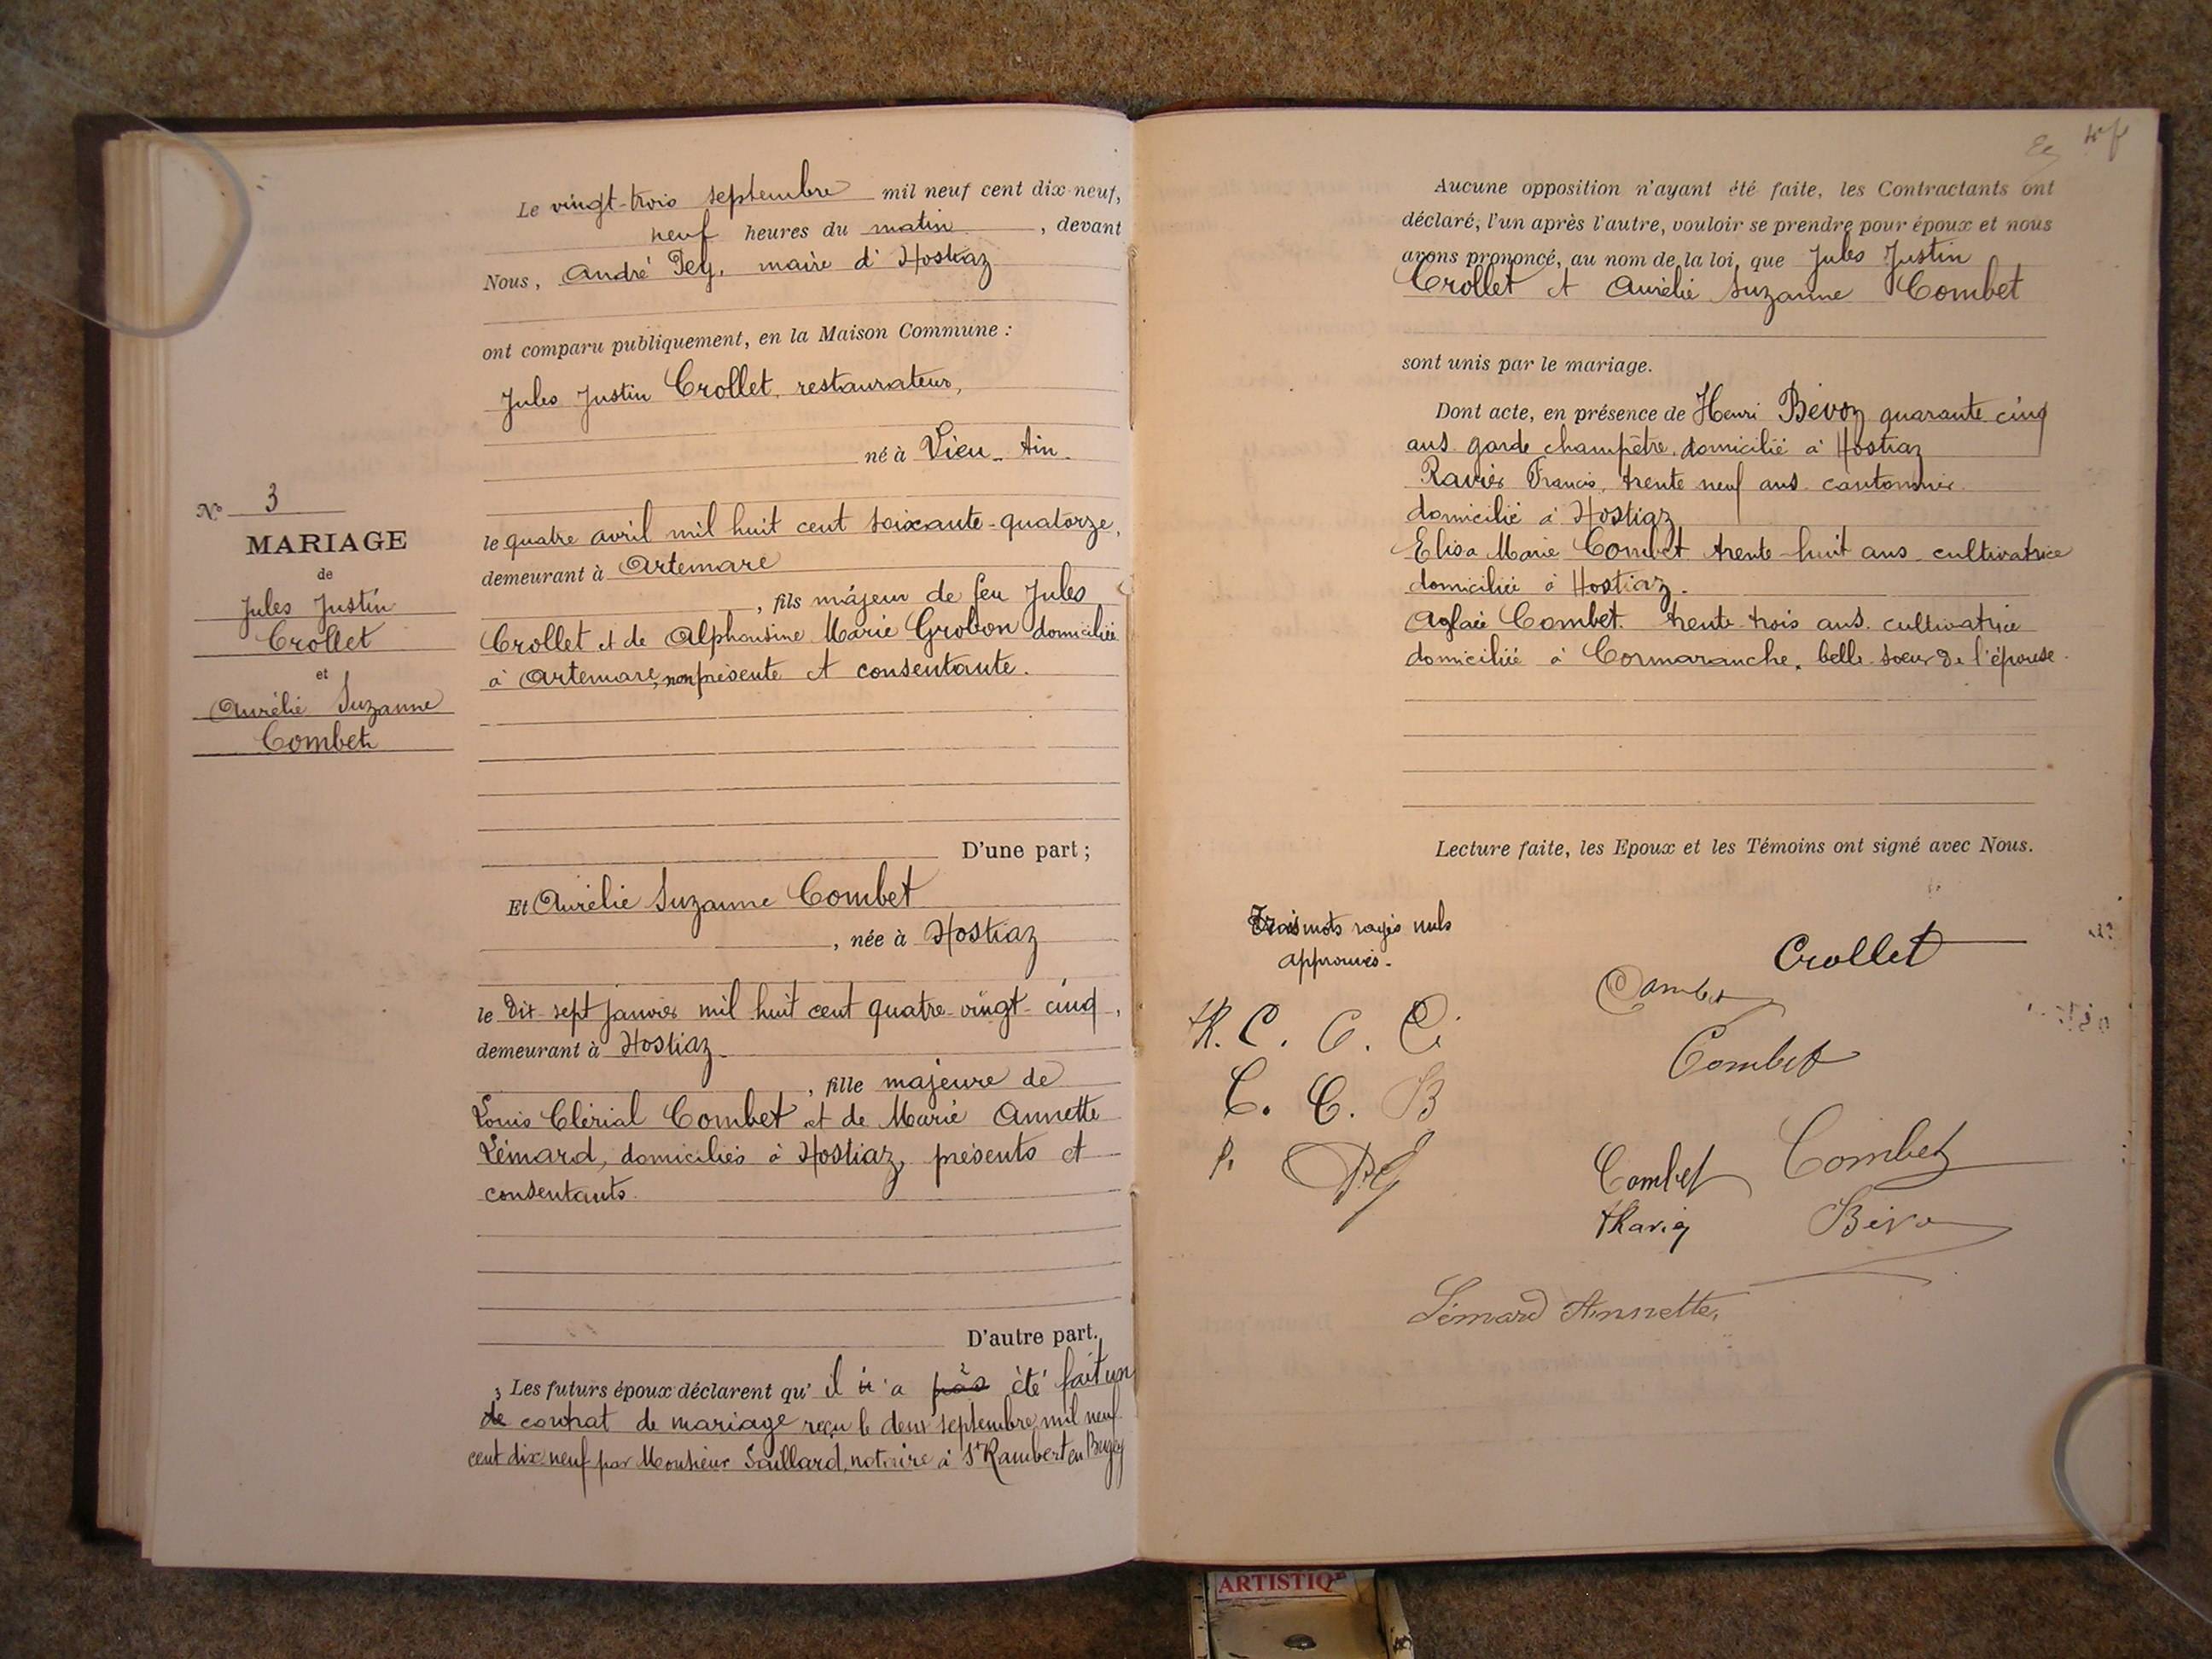 N° 3
MARIAGE
de
Jules Justin
Crollet
et
Aurélie Suzanne
Combet
Le vingt-trois septembre mil neuf cent dix-neuf,
neuf heures du matin, devant
Nous, André Pey, maire d'Hostiaz
ont comparu publiquement, en la Maison Commune :
Jules Justin Crollet, restaurateur,
né à Vieu - Ain -
le quatre avril mil huit cent soixante-quatorze,
demeurant à Artemare
, fils majeur de feu Jules
Crollet et de Alphonsine Marie Grobon domiciliée
à Artemare, non présente et consentante.
D'une part ;
Et Aurélie Suzanne Combet
, née à Hostiaz
le dix-sept janvier mil huit cent quatre-vingt-cinq,
demeurant à Hostiaz
, fille majeure de
Louis Clérial Combet et de Marie Annette
Lémard, domiciliés à Hostiaz, présents et
consentants.
D'autre part.
3 Les futurs époux déclarent qu'il n'a pas été fait un
de contrat de mariage reçu le deux septembre mil neuf
cent dix-neuf par Monsieur Saillard, notaire à St Rambert en Bugey
Aucune opposition n'ayant été faite, les Contractants ont
déclaré, l'un après l'autre, vouloir se prendre pour époux et nous
avons prononcé, au nom de la loi, que Jules Justin
Crollet et Aurélie Suzanne Combet
sont unis par le mariage.
Dont acte, en présence de Henri Bévoz quarante cinq
ans garde champêtre, domicilié à Hostiaz
Ravier Francis, trente neuf ans cantonnier
domicilié à Hostiaz
Elisa Marie Combet trente-huit ans cultivatrice
domiciliée à Hostiaz.
Aglaée Combet trente-trois ans cultivatrice
domiciliée à Cormaranche, belle-sœur de l'épouse.
Lecture faite, les Epoux et les Témoins ont signé avec Nous.
Trois mots rayés nuls
approuvés.
Crollet
Combet
R. C. C. C.
Combet
C. C. B
Combet Combet
P.
Lémard Annette
ARTISTIQ